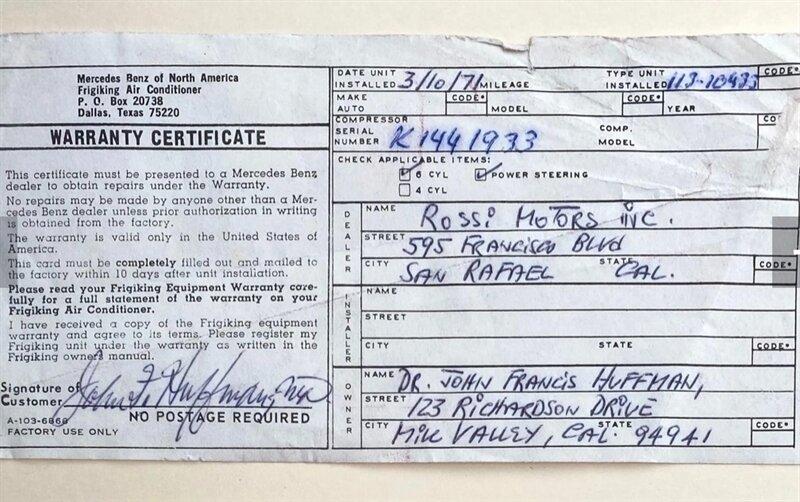 Mercedes Benz of North America
Frigiking Air Conditioner
P. O. Box 20738
Dallas, Texas 75220
WARRANTY CERTIFICATE
This certificate must be presented to a Mercedes Benz
dealer to obtain repairs under the Warranty.
No repairs may be made by anyone other than a Mer-
cedes Benz dealer unless prior authorization in writing
is obtained from the factory.
The warranty is valid only in the United States of
America.
This card must be completely filled out and mailed to
the factory within 10 days after unit installation.
Please read your Frigiking Equipment Warranty care-
fully for a full statement of the warranty on your
Frigiking Air Conditioner.
I have received a copy of the Frigiking equipment
warranty and agree to its terms. Please register my
Frigiking unit under the warranty as written in the
Frigiking owner's manual.
Signature of
Customer John F. Huffman, MD
NO POSTAGE REQUIRED
A-103-6868
FACTORY USE ONLY
DATE UNIT INSTALLED 3/10/71 MILEAGE TYPE UNIT INSTALLED 113-10433 CODE*
MAKE AUTO CODE* MODEL CODE* YEAR
COMPRESSOR SERIAL NUMBER K1441933 COMP. MODEL CO
CHECK APPLICABLE ITEMS:
6 CYL POWER STEERING
4 CYL
DEALER
NAME ROSSI MOTORS INC.
STREET 595 FRANCISCO BLVD
CITY SAN RAFAEL STATE CAL. CODE*
INSTALLER
NAME
STREET
CITY STATE CODE*
OWNER
NAME DR. JOHN FRANCIS HUFFMAN,
STREET 123 RICHARDSON DRIVE
CITY MILL VALLEY, STATE CAL. 94941 CODE*